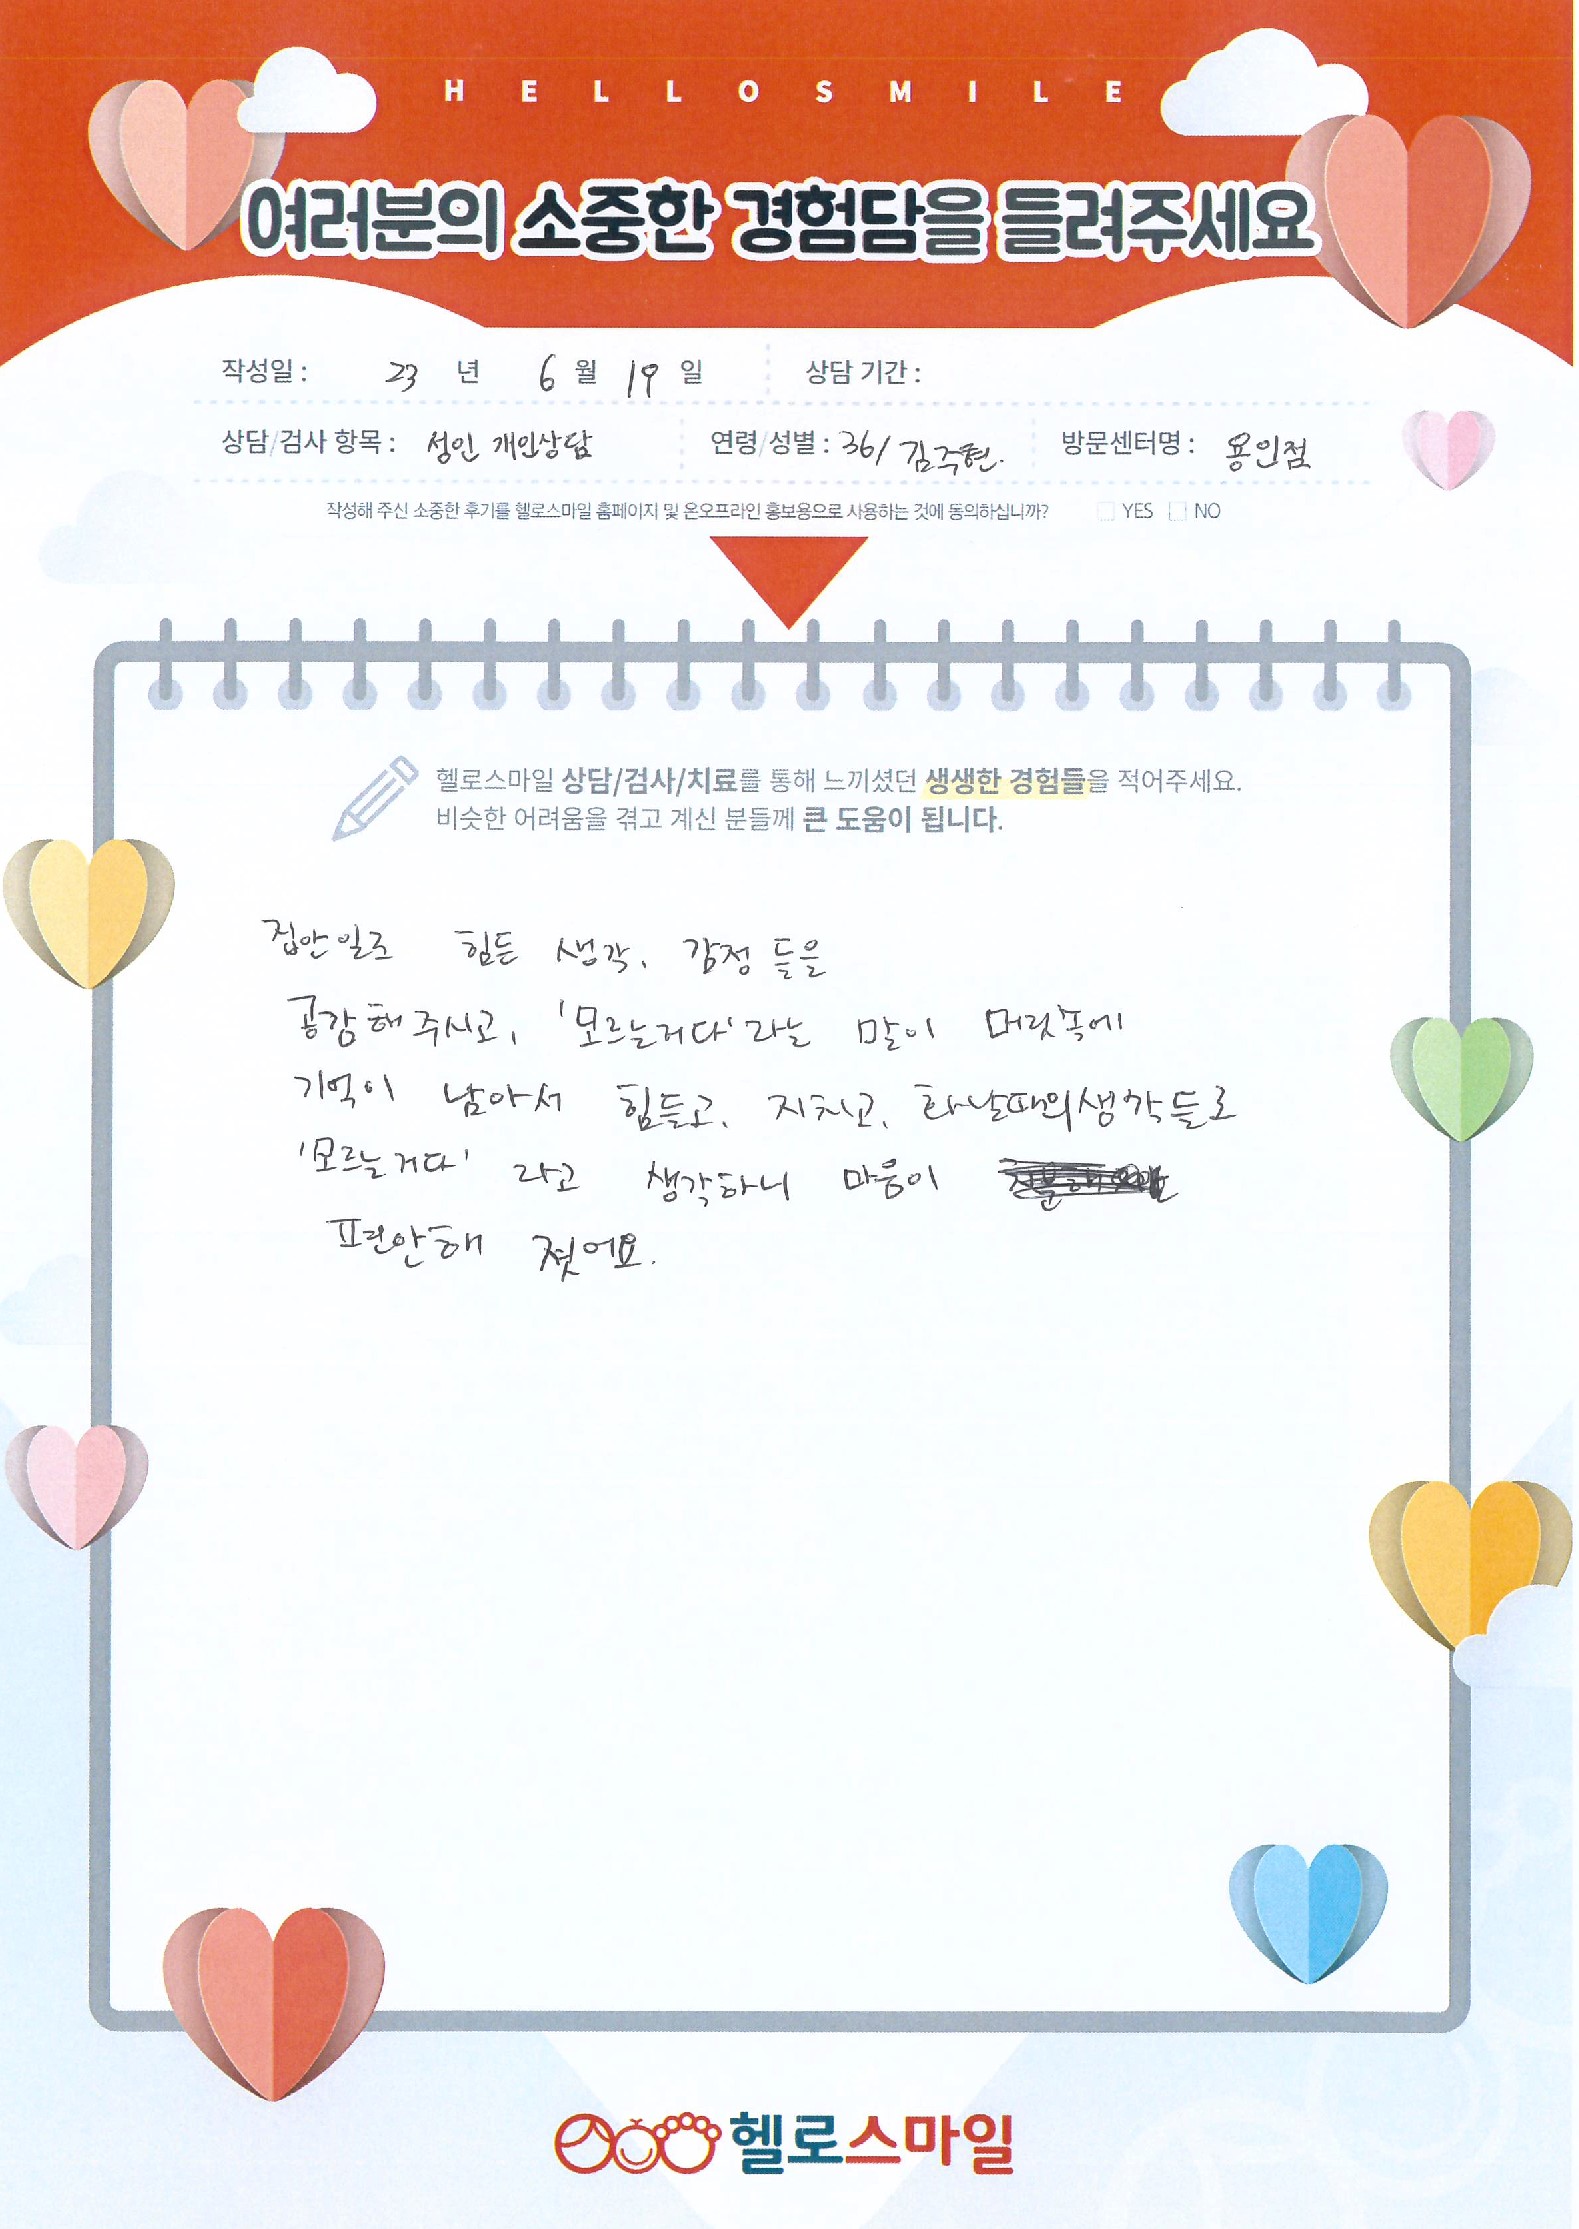 HELLOSMILE
여러분의 소중한 경험담을 들려주세요
작성일 : 23 년 6 월 19 일 상담 기간 :
상담/검사 항목 : 성인 개인상담 연령/성별 : 36/ 김주현. 방문센터명 : 용인점
작성해 주신 소중한 후기를 헬로스마일 홈페이지 및 온오프라인 홍보용으로 사용하는 것에 동의하십니까? YES NO
헬로스마일 상담/검사/치료를 통해 느끼셨던 생생한 경험들을 적어주세요.
비슷한 어려움을 겪고 계신 분들께 큰 도움이 됩니다.
집안일로 힘든 생각, 감정들을
공감해주시고, '모르는거다'라는 말이 머릿속에
기억이 남아서 힘들고, 지치고, 화날때의생각들로
'모르는거다' 라고 생각하니 마음이
편안해 졌어요.
헬로스마일